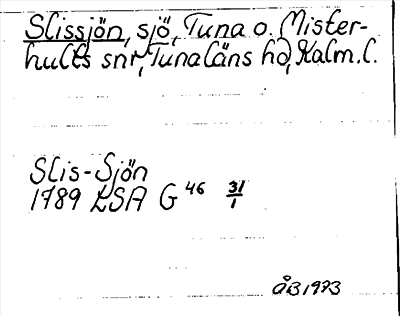 Slissjön, sjö, Tuna o. Mister-
hults snr, Tunaläns hd, Kalm. l.
Slis-Sjön
1789 LSA G 46 31/1
ÅB 1973